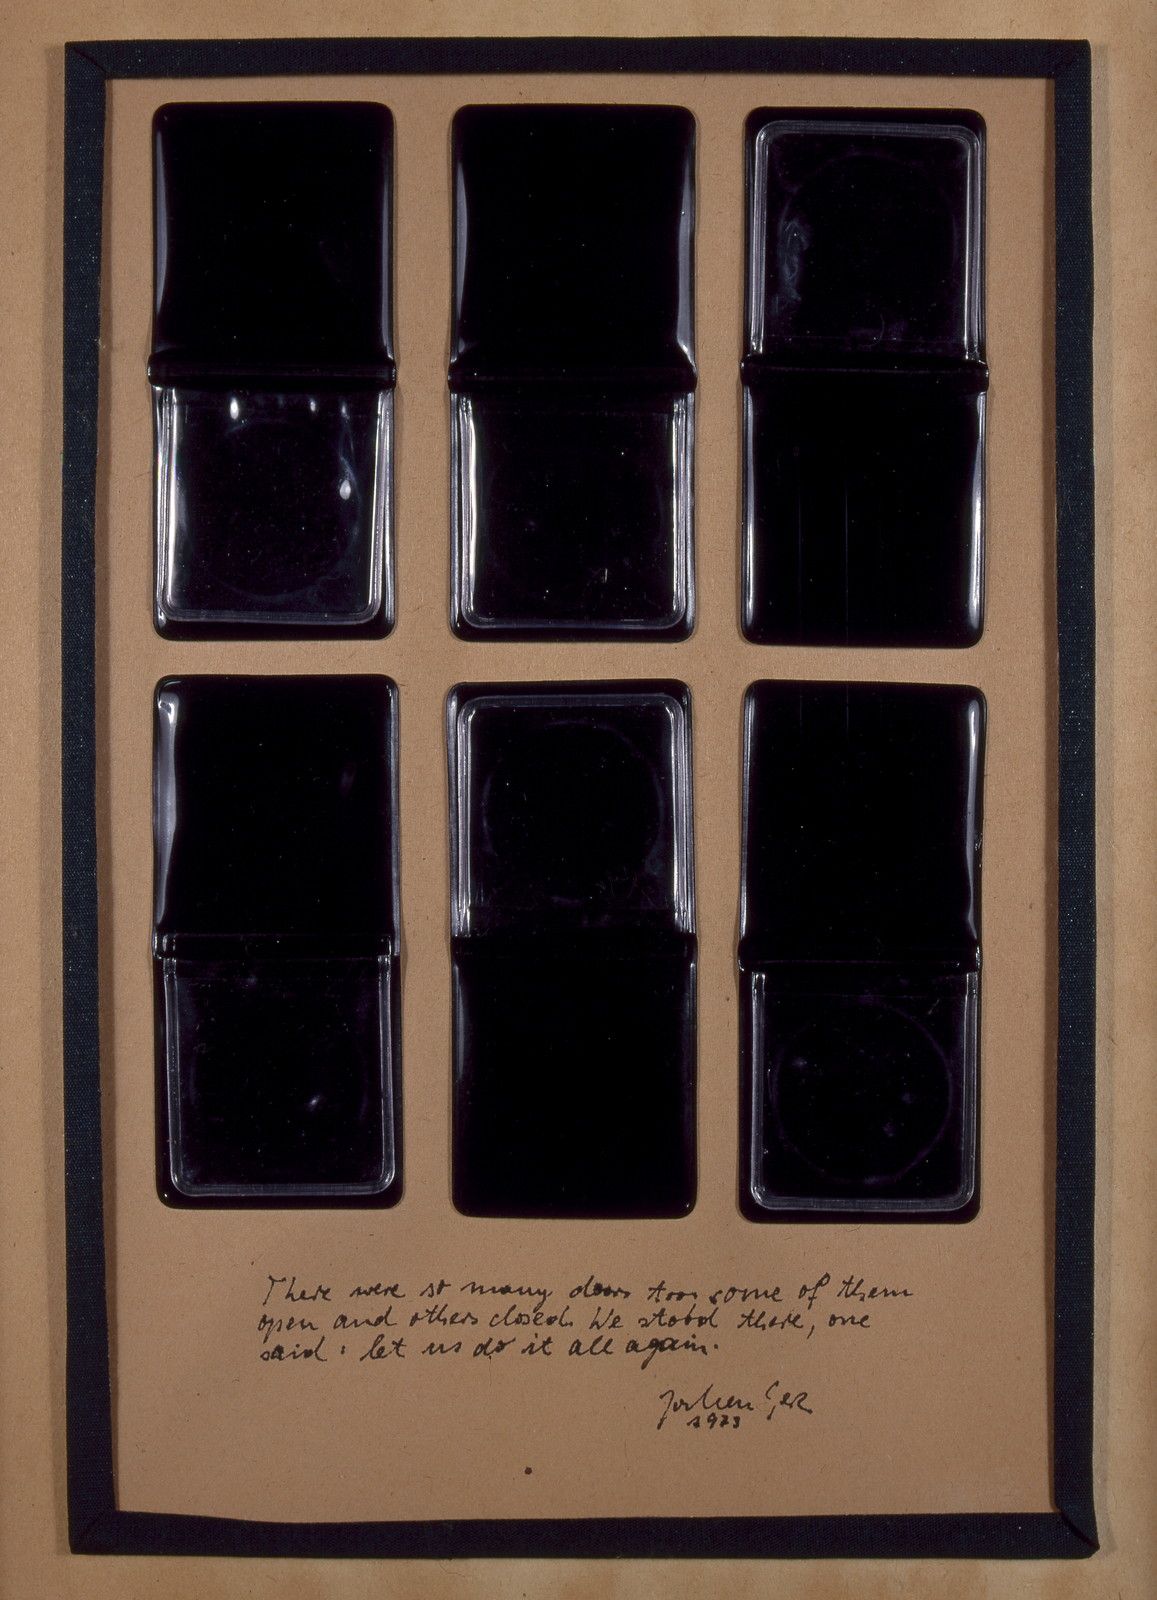 There were so many doors too some of them
open and others closed. We stood there, one
said : let us do it all again.
Jochen Gerz
1973